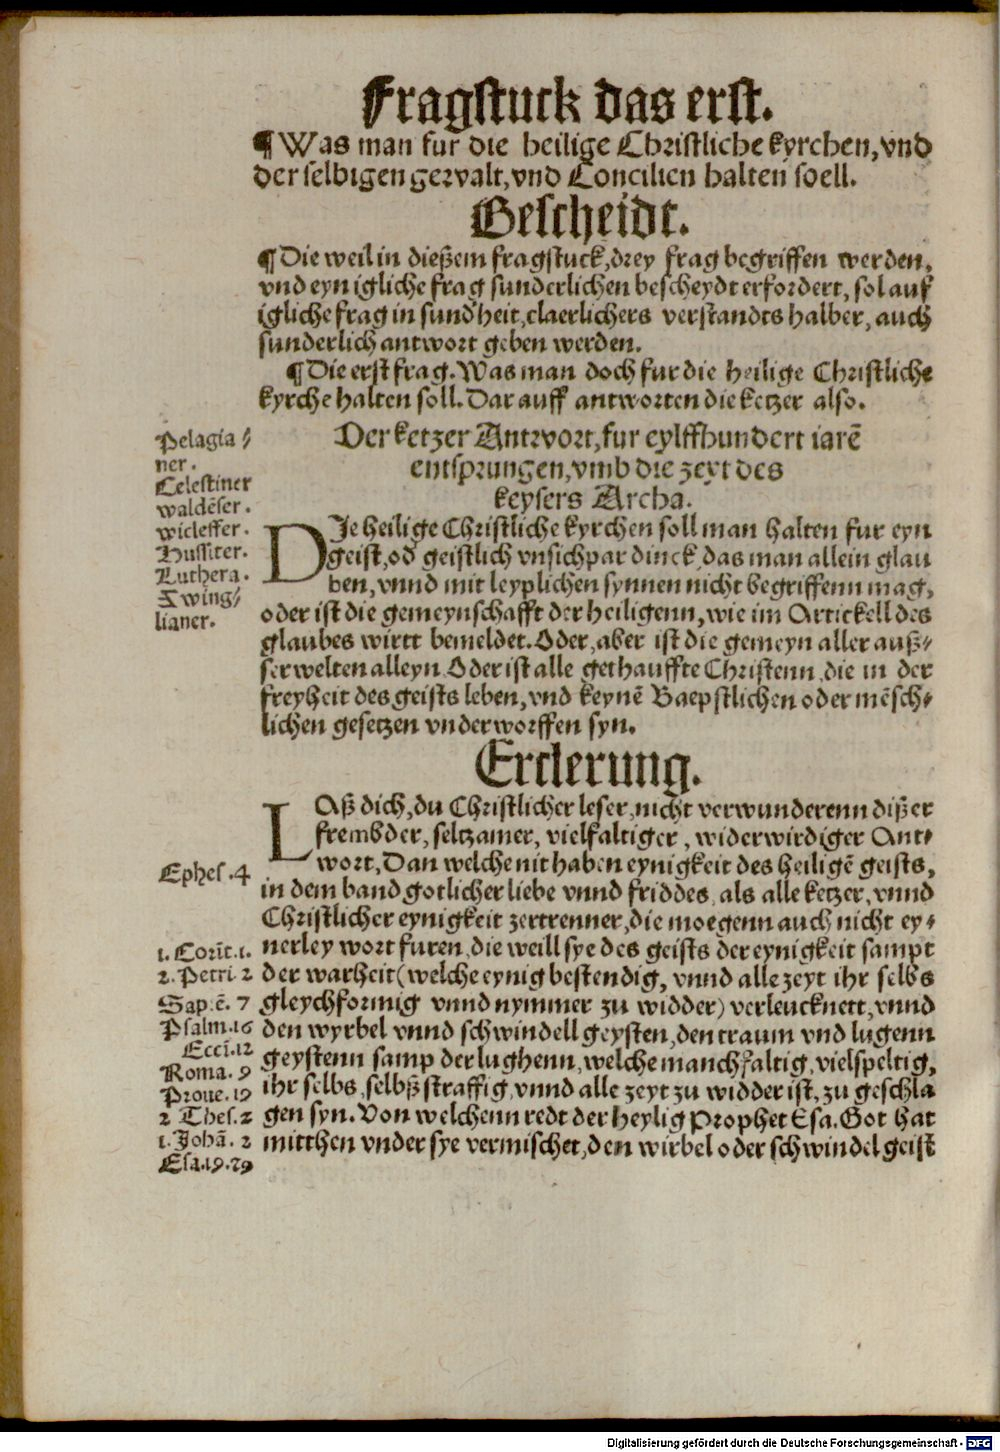 Fragstuck das erst.
¶ Was man fur die heilige Christliche kyrchen, vnd
der selbigen gewalt, vnd Concilien halten soell.
Bescheidt.
¶ Die weil in dießem fragstuck, drey frag begriffen werden,
vnd eyn igliche frag sunderlichen bescheydt erfordert, sol auf
igliche frag in sundheit, claerlichers verstandts halber, auch
sunderlich antwort geben werden.
¶ Die erst frag. Was man doch fur die heilige Christliche
kyrche halten soll. Dar auff antworten die ketzer also.
Der ketzer Antwort, fur eylffhundert iarē
entsprungen, vmb die zeyt des
keysers Archa.
Pelagia⸗
ner.
Celestiner
waldēser.
wicleffer.
Hussiter.
Luthera.
Zwing⸗
lianer.
DJe heilige Christliche kyrchen soll man halten fur eyn
geist, od geistlich vnsichpar dinck, das man allein glau
ben, vnnd mit leyplichen synnen nicht begriffenn mag,
oder ist die gemeynschafft der heiligenn, wie im Artickell des
glaubes wirtt bemeldet. Oder, aber ist die gemeyn aller auß⸗
serwelten alleyn. Oder ist alle gethauffte Christenn, die in der
freyheit des geists leben, vnd keynē Baepstlichen oder mēsch⸗
lichen gesetzen vnderworffen syn.
Erclerung.
LAß dich, du Christlicher leser, nicht verwunderenn dißer
frembder, seltzamer, vielfaltiger, widerwirdiger Ant⸗
wort, Dan welche nit haben eynigkeit des heiligē geists,
in dem band gotlicher liebe vnnd friddes, als alle ketzer, vnnd
Christlicher eynigkeit zertrenner, die moegenn auch nicht ey⸗
nerley wort furen, die weill sye des geists der eynigkeit sampt
der warheit (welche eynig bestendig, vnnd alle zeyt ihr selbs
gleychformig vnnd nymmer zu widder) verleucknett, vnnd
den wyrbel vnnd schwindell geysten, den traum vnd lugenn
geystenn samp der lughenn, welche manchfaltig, vielspeltig,
ihr selbs, selbß straffig, vnnd alle zeyt zu widder ist, zu geschla
gen syn. Von welchenn redt der heylig Prophet Esa. Got hat
mitthen vnder sye vermischet, den wirbel oder schwindel geist
Ephes. 4
1. Corīt. 1.
2. Petri. 2
Sap. ē. 7
Psalm. 16
Eccī. 12
Roma. 9
Proue. 19
2 Thes. 2
1. Johā. 2
Esa. 19. 29
Digitalisierung gefördert durch die Deutsche Forschungsgemeinschaft - DFG